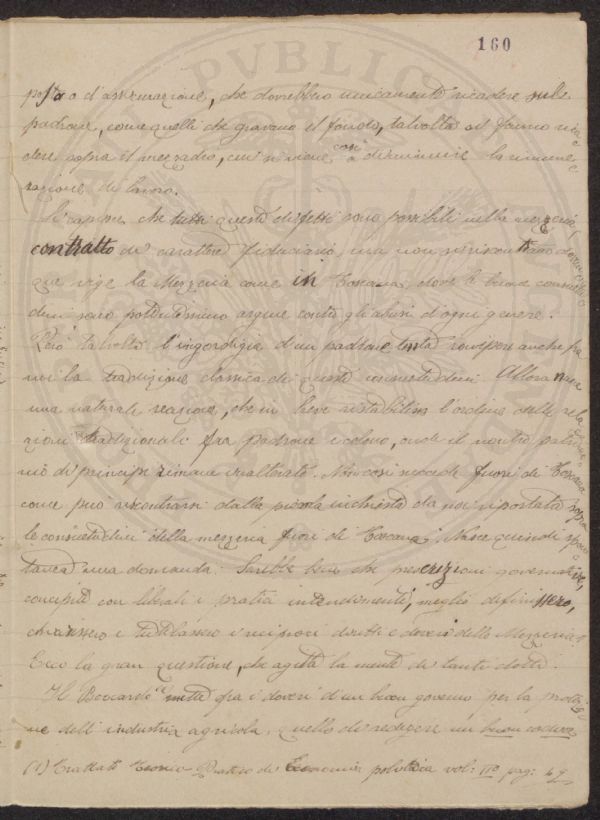 160
d'assicurazione, che dovrebbero unicamente ricadere sul
padrone, come quelli che gravano il fondo, talvolta si fanno rica
dere sopra il mezzadro, cui si viene così a diminuire la rimune
razione di lavoro.
che tutti questi difetti sono possibili nella mezzeria,
contratto di carattere fiduciario, ma non si riscontrano
que vige la Mezzeria come in Toscana, dove le buone consuetu
dini sono potentissimo argine contro gli abusi d'ogni genere.
Però talvolta l'ingordigia d'un padrone tenta rompere anche fra
noi la tradizione classica di queste consuetudini. Allora
una naturale reazione, che in breve ristabilisce l'ordine delle rela
zioni tradizionali fra padrone e colono, onde il nostro patri
nio di principi rimane inalterato. Non così succede fuori di Toscana
come può riscontrarsi dalla piccola inchiesta da noi riportata sopra
le consuetudini della mezzeria fuori di Toscana. Nasce quindi spon
tanea una domanda. Sarebbe bene che prescrizioni governative,
concepite con liberali e pratici intendimenti, meglio definissero,
chiarissero e tutelassero i reciproci diritti e doveri della Mezzeria?
Ecco la gran questione, che agita la mente di tanti dotti.
Il Boccardo mette fra i doveri d'un buon governo per la protezio
ne dell'industria agricola, quello di redigere un buon codice
(1) Trattato Teorico-Pratico di Economia politica vol: IIº pag: 49